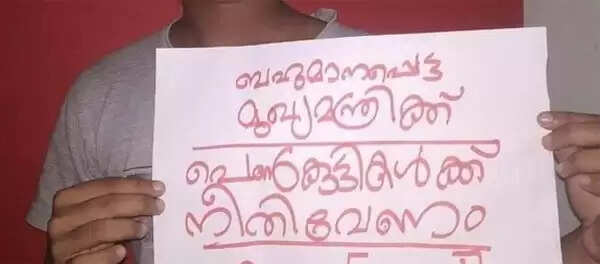 ബഹുമാനപ്പെട്ട
മുഖ്യമന്ത്രിക്ക്
പെൺകുട്ടികൾക്ക്
നീതിവേണം